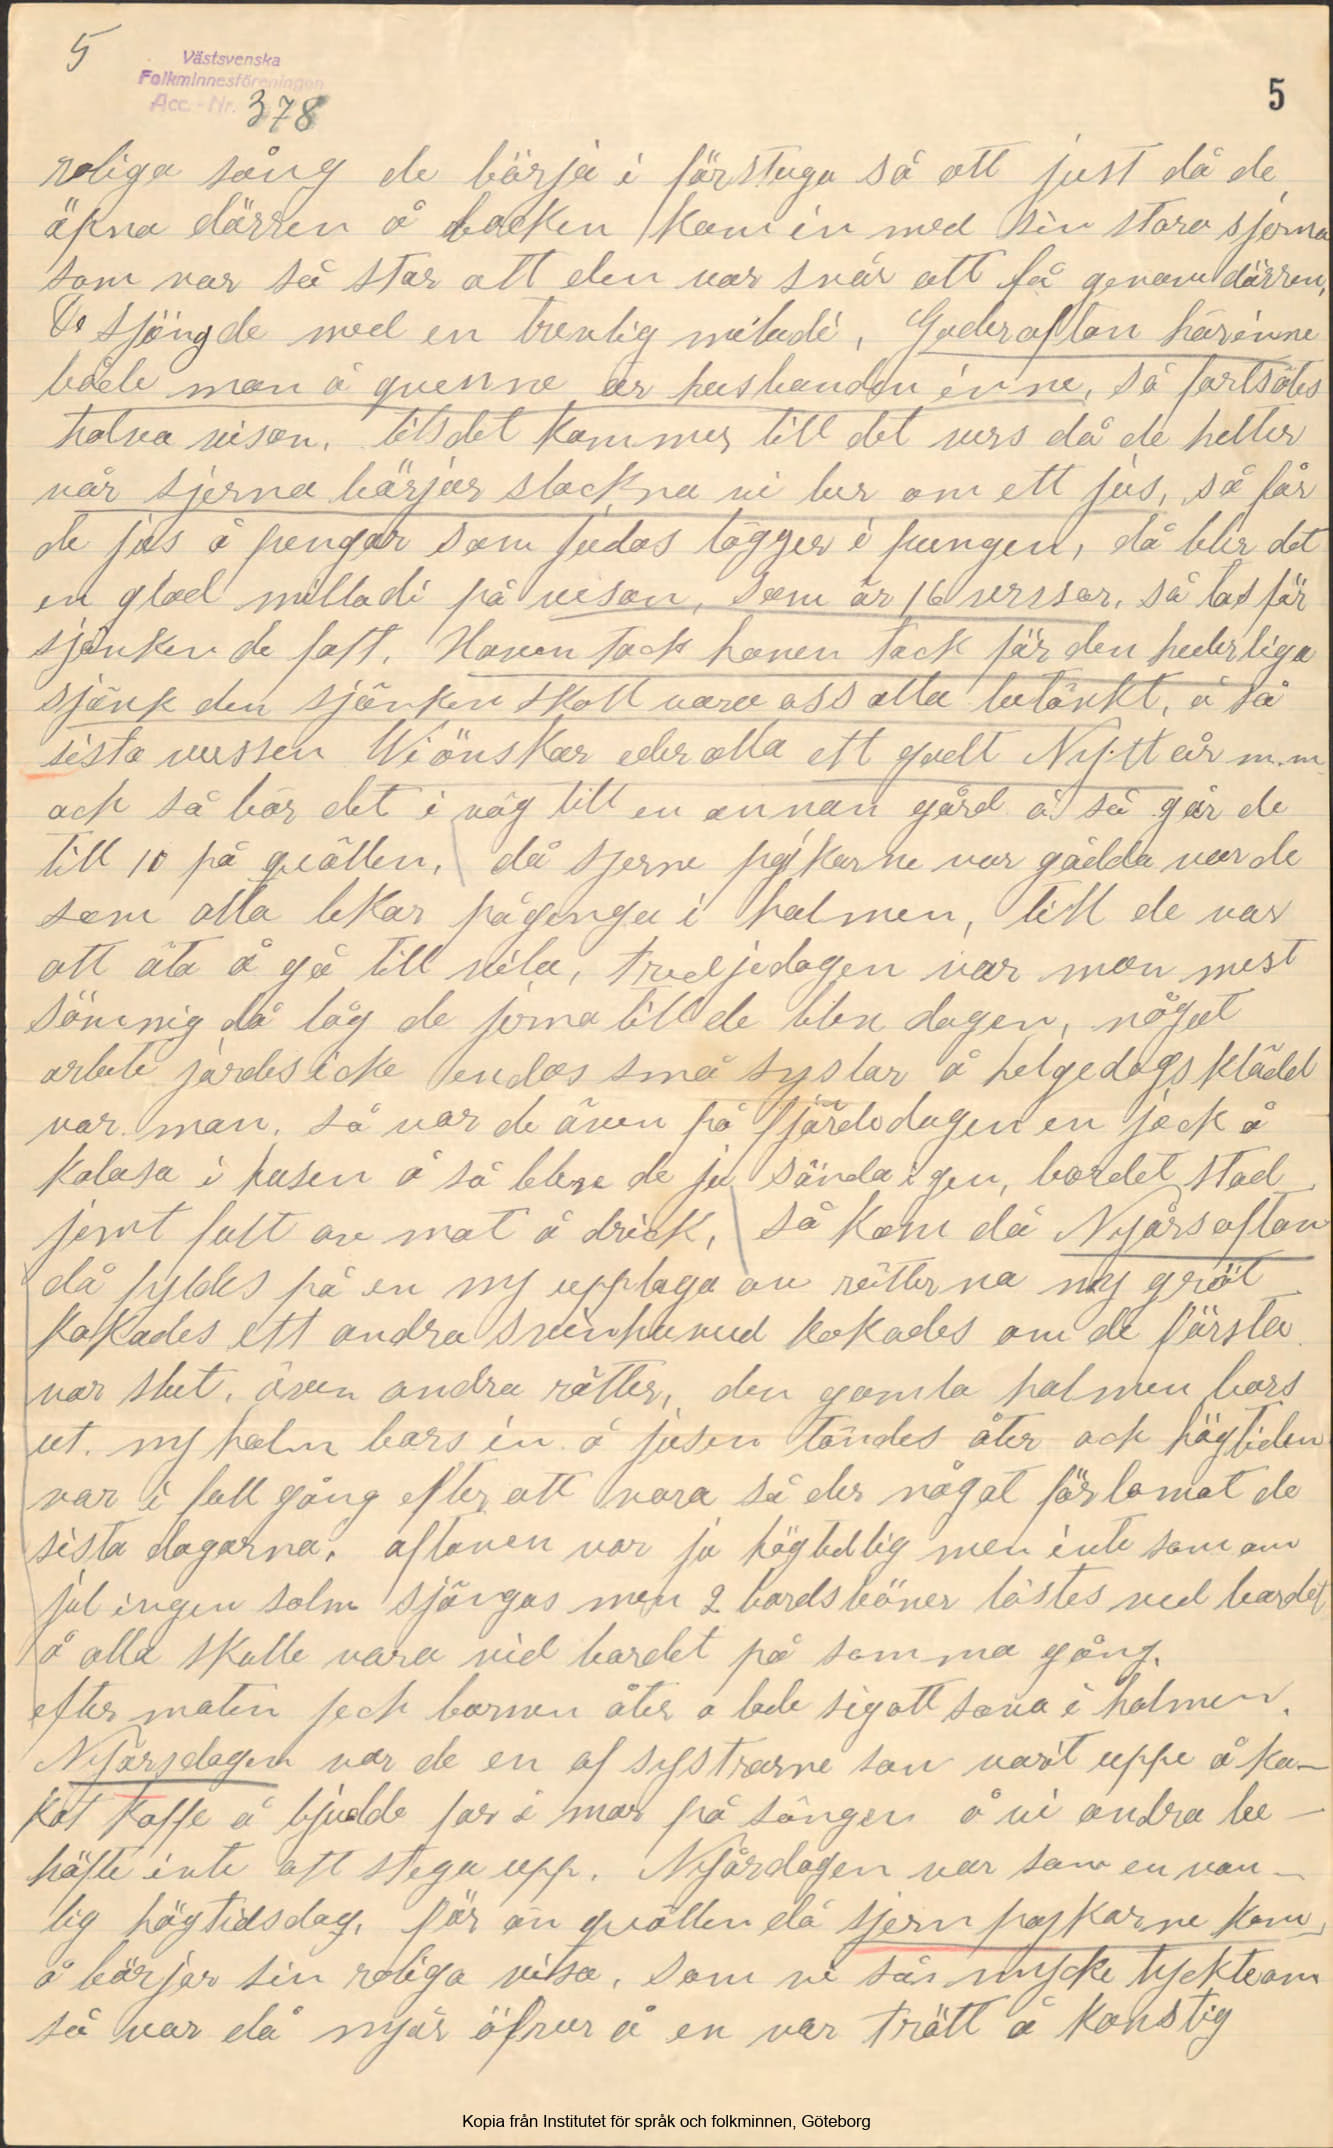 5
Västsvenska
Folkminnesföreningen
Acc.-Nr. 378
5
roliga sång de börja i förstuga så att just då de
äpna dörren å bocken kom in med sin stora sjerna
som var så stor att den var svår att få genom dörren,
De sjöngde med en trevlig meladi, Goder afton härinne
både man å quenne är husbonden inne, så fortsätes
halva visan. tils det kommer till det vers då de heller
vår sjerna börjar slockna vi ber om ett jus, så får
de jus å pengar som judas lägger i pungen, då blir det
en glad milladi på visan, som är 16 verssar, så tas för
sjänken de fått. Haven tack haven tack för den hederliga
sjänk den sjänken skall vara oss alla betänkt, å så
sista verssen Vi önskar eder alla ett godt Nytt år m.m
ock så bär det i väg till en annan gård å så går de
till 10 på quällen, då sjerne pojkarne var gådda var de
som alla lekar pågenga i halmen, till de var
att äta å gå till vila, tredjedagen var man mest
sömnig då låg de jerna till de blev dagen, något
arbete jordes icke endas små syslar å helgedagsklädd
var man. så var de även på fjärdedagen en jeck å
kalasa i husen å så bleve de ju sånda igen, bordet stod
jemt fult av mat å drick, så kom då Nyårsaftan
då fyldes på en ny upplaga av rätterna ny gröt
kokades ett andra svinhuvud kokades om de första
var slut. även andra rätter, den gamla halmen bars
ut. ny halm bars in å jusen tändes åter ock högtiden
var i full gång efter att vara så der något förlamat de
sista dagarna. aftanen var jo högtidlig men inte som om
jul ingen salm sjöngas men 2 bordsböner lästes ved bordet
å alla skulle vara vid bordet på samma gång.
efter maten feck barnen åter o bele sig att sova i halmen.
Nyårsdagen var de en af systrarne som varit uppe å ko-
kat kaffe å bjudde far å mor på sängen å vi andra be-
höfte inte att stega upp. Nyårdagen var som en van-
lig högtidsdag, för än quällen då sjern pojkarne kom
å börjar sin roliga visa, som vi så mycke tyckte om
så var då nyår öfver å en var trött å konstig
Kopia från Institutet för språk och folkminnen, Göteborg